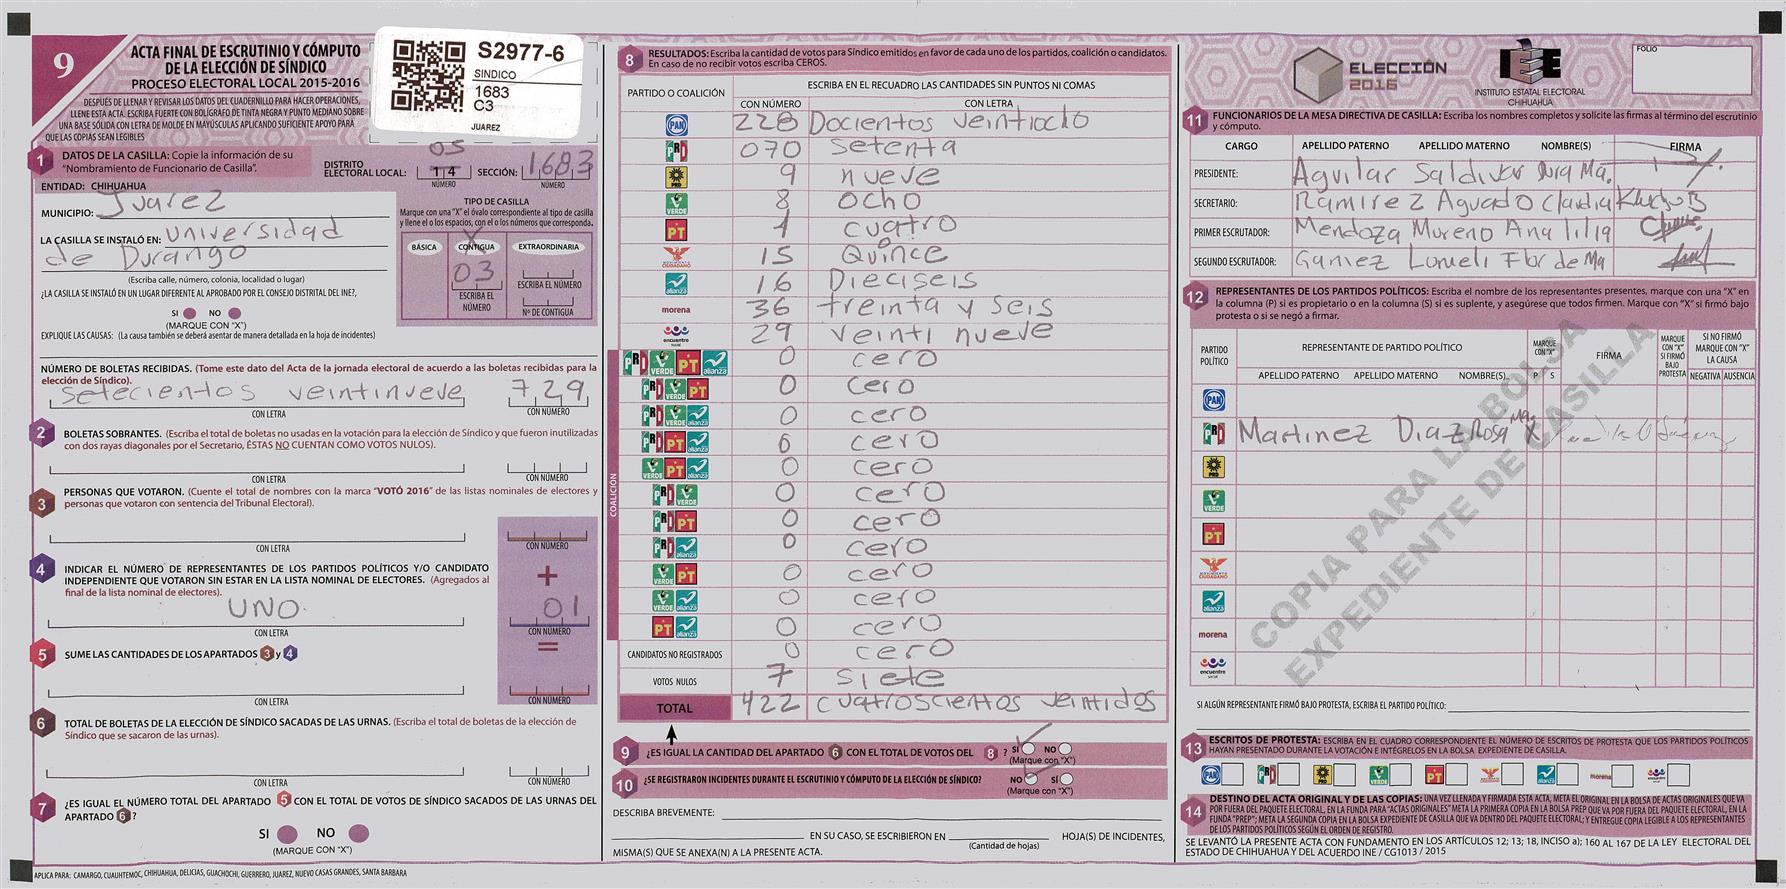 9
ACTA FINAL DE ESCRUTINIO Y CÓMPUTO
DE LA ELECCIÓN DE SÍNDICO
PROCESO ELECTORAL LOCAL 2015-2016
DESPUÉS DE LLENAR Y REVISAR LOS DATOS DEL CUADERNILLO PARA HACER OPERACIONES,
LLENE ESTA ACTA. ESCRIBA FUERTE CON BOLÍGRAFO DE TINTA NEGRA Y PUNTO MEDIANO SOBRE
UNA BASE SÓLIDA CON LETRA DE MOLDE EN MAYÚSCULAS APLICANDO SUFICIENTE APOYO PARA
QUE LAS COPIAS SEAN LEGIBLES
S2977-6
SINDICO
1683
C3
JUAREZ
1 DATOS DE LA CASILLA: Copie la información de su
"Nombramiento de Funcionario de Casilla".
DISTRITO ELECTORAL LOCAL: 05 14 NÚMERO
SECCIÓN: 1683 NÚMERO
ENTIDAD: CHIHUAHUA
MUNICIPIO: Juarez
LA CASILLA SE INSTALÓ EN: Universidad
de Durango
(Escriba calle, número, colonia, localidad o lugar)
¿LA CASILLA SE INSTALÓ EN UN LUGAR DIFERENTE AL APROBADO POR EL CONSEJO DISTRITAL DEL INE?,
SI NO
(MARQUE CON "X")
EXPLIQUE LAS CAUSAS: (La causa también se deberá asentar de manera detallada en la hoja de incidentes)
TIPO DE CASILLA
Marque con una "X" el óvalo correspondiente al tipo de casilla
y llene el o los espacios, con el o los números que corresponda.
BÁSICA CONTIGUA EXTRAORDINARIA
X
03
ESCRIBA EL NÚMERO
ESCRIBA EL NÚMERO
Nº DE CONTIGUA
NÚMERO DE BOLETAS RECIBIDAS. (Tome este dato del Acta de la jornada electoral de acuerdo a las boletas recibidas para la
elección de Síndico).
setecientos veintinueve 729
CON LETRA CON NÚMERO
2 BOLETAS SOBRANTES. (Escriba el total de boletas no usadas en la votación para la elección de Síndico y que fueron inutilizadas
con dos rayas diagonales por el Secretario, ÉSTAS NO CUENTAN COMO VOTOS NULOS).
CON LETRA CON NÚMERO
3 PERSONAS QUE VOTARON. (Cuente el total de nombres con la marca "VOTÓ 2016" de las listas nominales de electores y
personas que votaron con sentencia del Tribunal Electoral).
CON LETRA CON NÚMERO
4 INDICAR EL NÚMERO DE REPRESENTANTES DE LOS PARTIDOS POLÍTICOS Y/O CANDIDATO
INDEPENDIENTE QUE VOTARON SIN ESTAR EN LA LISTA NOMINAL DE ELECTORES. (Agregados al
final de la lista nominal de electores).
+
UNO. 01
CON LETRA CON NÚMERO
5 SUME LAS CANTIDADES DE LOS APARTADOS 3 y 4
=
CON LETRA CON NÚMERO
6 TOTAL DE BOLETAS DE LA ELECCIÓN DE SÍNDICO SACADAS DE LAS URNAS. (Escriba el total de boletas de la elección de
Síndico que se sacaron de las urnas).
CON LETRA CON NÚMERO
7 ¿ES IGUAL EL NÚMERO TOTAL DEL APARTADO 5 CON EL TOTAL DE VOTOS DE SÍNDICO SACADOS DE LAS URNAS DEL
APARTADO 6?
SI NO
(MARQUE CON "X")
APLICA PARA: CAMARGO, CUAUHTEMOC, CHIHUAHUA, DELICIAS, GUACHOCHI, GUERRERO, JUAREZ, NUEVO CASAS GRANDES, SANTA BARBARA
8 RESULTADOS: Escriba la cantidad de votos para Síndico emitidos en favor de cada uno de los partidos, coalición o candidatos.
En caso de no recibir votos escriba CEROS.
PARTIDO O COALICIÓN ESCRIBA EN EL RECUADRO LAS CANTIDADES SIN PUNTOS NI COMAS
CON NÚMERO CON LETRA
PAN 228 Docientos veintiocho
PRI 070 setenta
PRD 9 nueve
VERDE 8 ocho
PT 4 cuatro
MOVIMIENTO CIUDADANO 15 Quince
alianza 16 Dieciseis
morena 36 treinta y seis
encuentro social 29 veinti nueve
COALICIÓN
PRI VERDE PT alianza 0 cero
PRI VERDE PT 0 cero
PRI VERDE alianza 0 cero
PRI PT alianza 0 cero
VERDE PT alianza 0 cero
PRI VERDE 0 cero
PRI PT 0 cero
PRI alianza 0 cero
VERDE PT 0 cero
VERDE alianza 0 cero
PT alianza 0 cero
CANDIDATOS NO REGISTRADOS 0 cero
VOTOS NULOS 7 siete
TOTAL 422 cuatroscientos veintidos
9 ¿ES IGUAL LA CANTIDAD DEL APARTADO 6 CON EL TOTAL DE VOTOS DEL 8 ? SI NO
(Marque con "X")
10 ¿SE REGISTRARON INCIDENTES DURANTE EL ESCRUTINIO Y CÓMPUTO DE LA ELECCIÓN DE SÍNDICO? NO SÍ
(Marque con "X")
DESCRIBA BREVEMENTE:
EN SU CASO, SE ESCRIBIERON EN HOJA(S) DE INCIDENTES,
(Cantidad de hojas)
MISMA(S) QUE SE ANEXA(N) A LA PRESENTE ACTA.
ELECCIÓN
2016
IEE
INSTITUTO ESTATAL ELECTORAL
CHIHUAHUA
FOLIO
11 FUNCIONARIOS DE LA MESA DIRECTIVA DE CASILLA: Escriba los nombres completos y solicite las firmas al término del escrutinio
y cómputo.
CARGO APELLIDO PATERNO APELLIDO MATERNO NOMBRE(S) FIRMA
PRESIDENTE: Aguilar Saldivar Ma.
SECRETARIO: Ramirez Aguado Claudia
PRIMER ESCRUTADOR: Mendoza Moreno Ana lilia
SEGUNDO ESCRUTADOR: Gamez Lomeli Flor de Ma
12 REPRESENTANTES DE LOS PARTIDOS POLÍTICOS: Escriba el nombre de los representantes presentes, marque con una "X" en
la columna (P) si es propietario o en la columna (S) si es suplente, y asegúrese que todos firmen. Marque con "X" si firmó bajo
protesta o si se negó a firmar.
PARTIDO POLÍTICO REPRESENTANTE DE PARTIDO POLÍTICO MARQUE CON "X" FIRMA MARQUE CON "X" SI FIRMÓ BAJO PROTESTA SI NO FIRMÓ MARQUE CON "X" LA CAUSA
APELLIDO PATERNO APELLIDO MATERNO NOMBRE(S) P S NEGATIVA AUSENCIA
PAN
PRI Martinez Diaz Rosa Ma. X
PRD
VERDE
PT
MOVIMIENTO CIUDADANO
alianza
morena
encuentro social
COPIA PARA LA BOLSA
EXPEDIENTE DE CASILLA
SI ALGÚN REPRESENTANTE FIRMÓ BAJO PROTESTA, ESCRIBA EL PARTIDO POLÍTICO:
13 ESCRITOS DE PROTESTA: ESCRIBA EN EL CUADRO CORRESPONDIENTE EL NÚMERO DE ESCRITOS DE PROTESTA QUE LOS PARTIDOS POLÍTICOS
HAYAN PRESENTADO DURANTE LA VOTACIÓN E INTÉGRELOS EN LA BOLSA EXPEDIENTE DE CASILLA.
PAN PRI PRD VERDE PT MOVIMIENTO CIUDADANO alianza morena encuentro social
14 DESTINO DEL ACTA ORIGINAL Y DE LAS COPIAS: UNA VEZ LLENADA Y FIRMADA ESTA ACTA, META EL ORIGINAL EN LA BOLSA DE ACTAS ORIGINALES QUE VA
POR FUERA DEL PAQUETE ELECTORAL, EN LA FUNDA PARA "ACTAS ORIGINALES" META LA PRIMERA COPIA EN LA BOLSA PREP QUE VA POR FUERA DEL PAQUETE ELECTORAL, EN LA
FUNDA "PREP"; META LA SEGUNDA COPIA EN LA BOLSA EXPEDIENTE DE CASILLA QUE VA DENTRO DEL PAQUETE ELECTORAL; Y ENTREGUE COPIA LEGIBLE A LOS REPRESENTANTES
DE LOS PARTIDOS POLÍTICOS SEGÚN EL ORDEN DE REGISTRO.
SE LEVANTÓ LA PRESENTE ACTA CON FUNDAMENTO EN LOS ARTÍCULOS 12; 13; 18, INCISO a); 160 AL 167 DE LA LEY ELECTORAL DEL
ESTADO DE CHIHUAHUA Y DEL ACUERDO INE / CG1013 / 2015